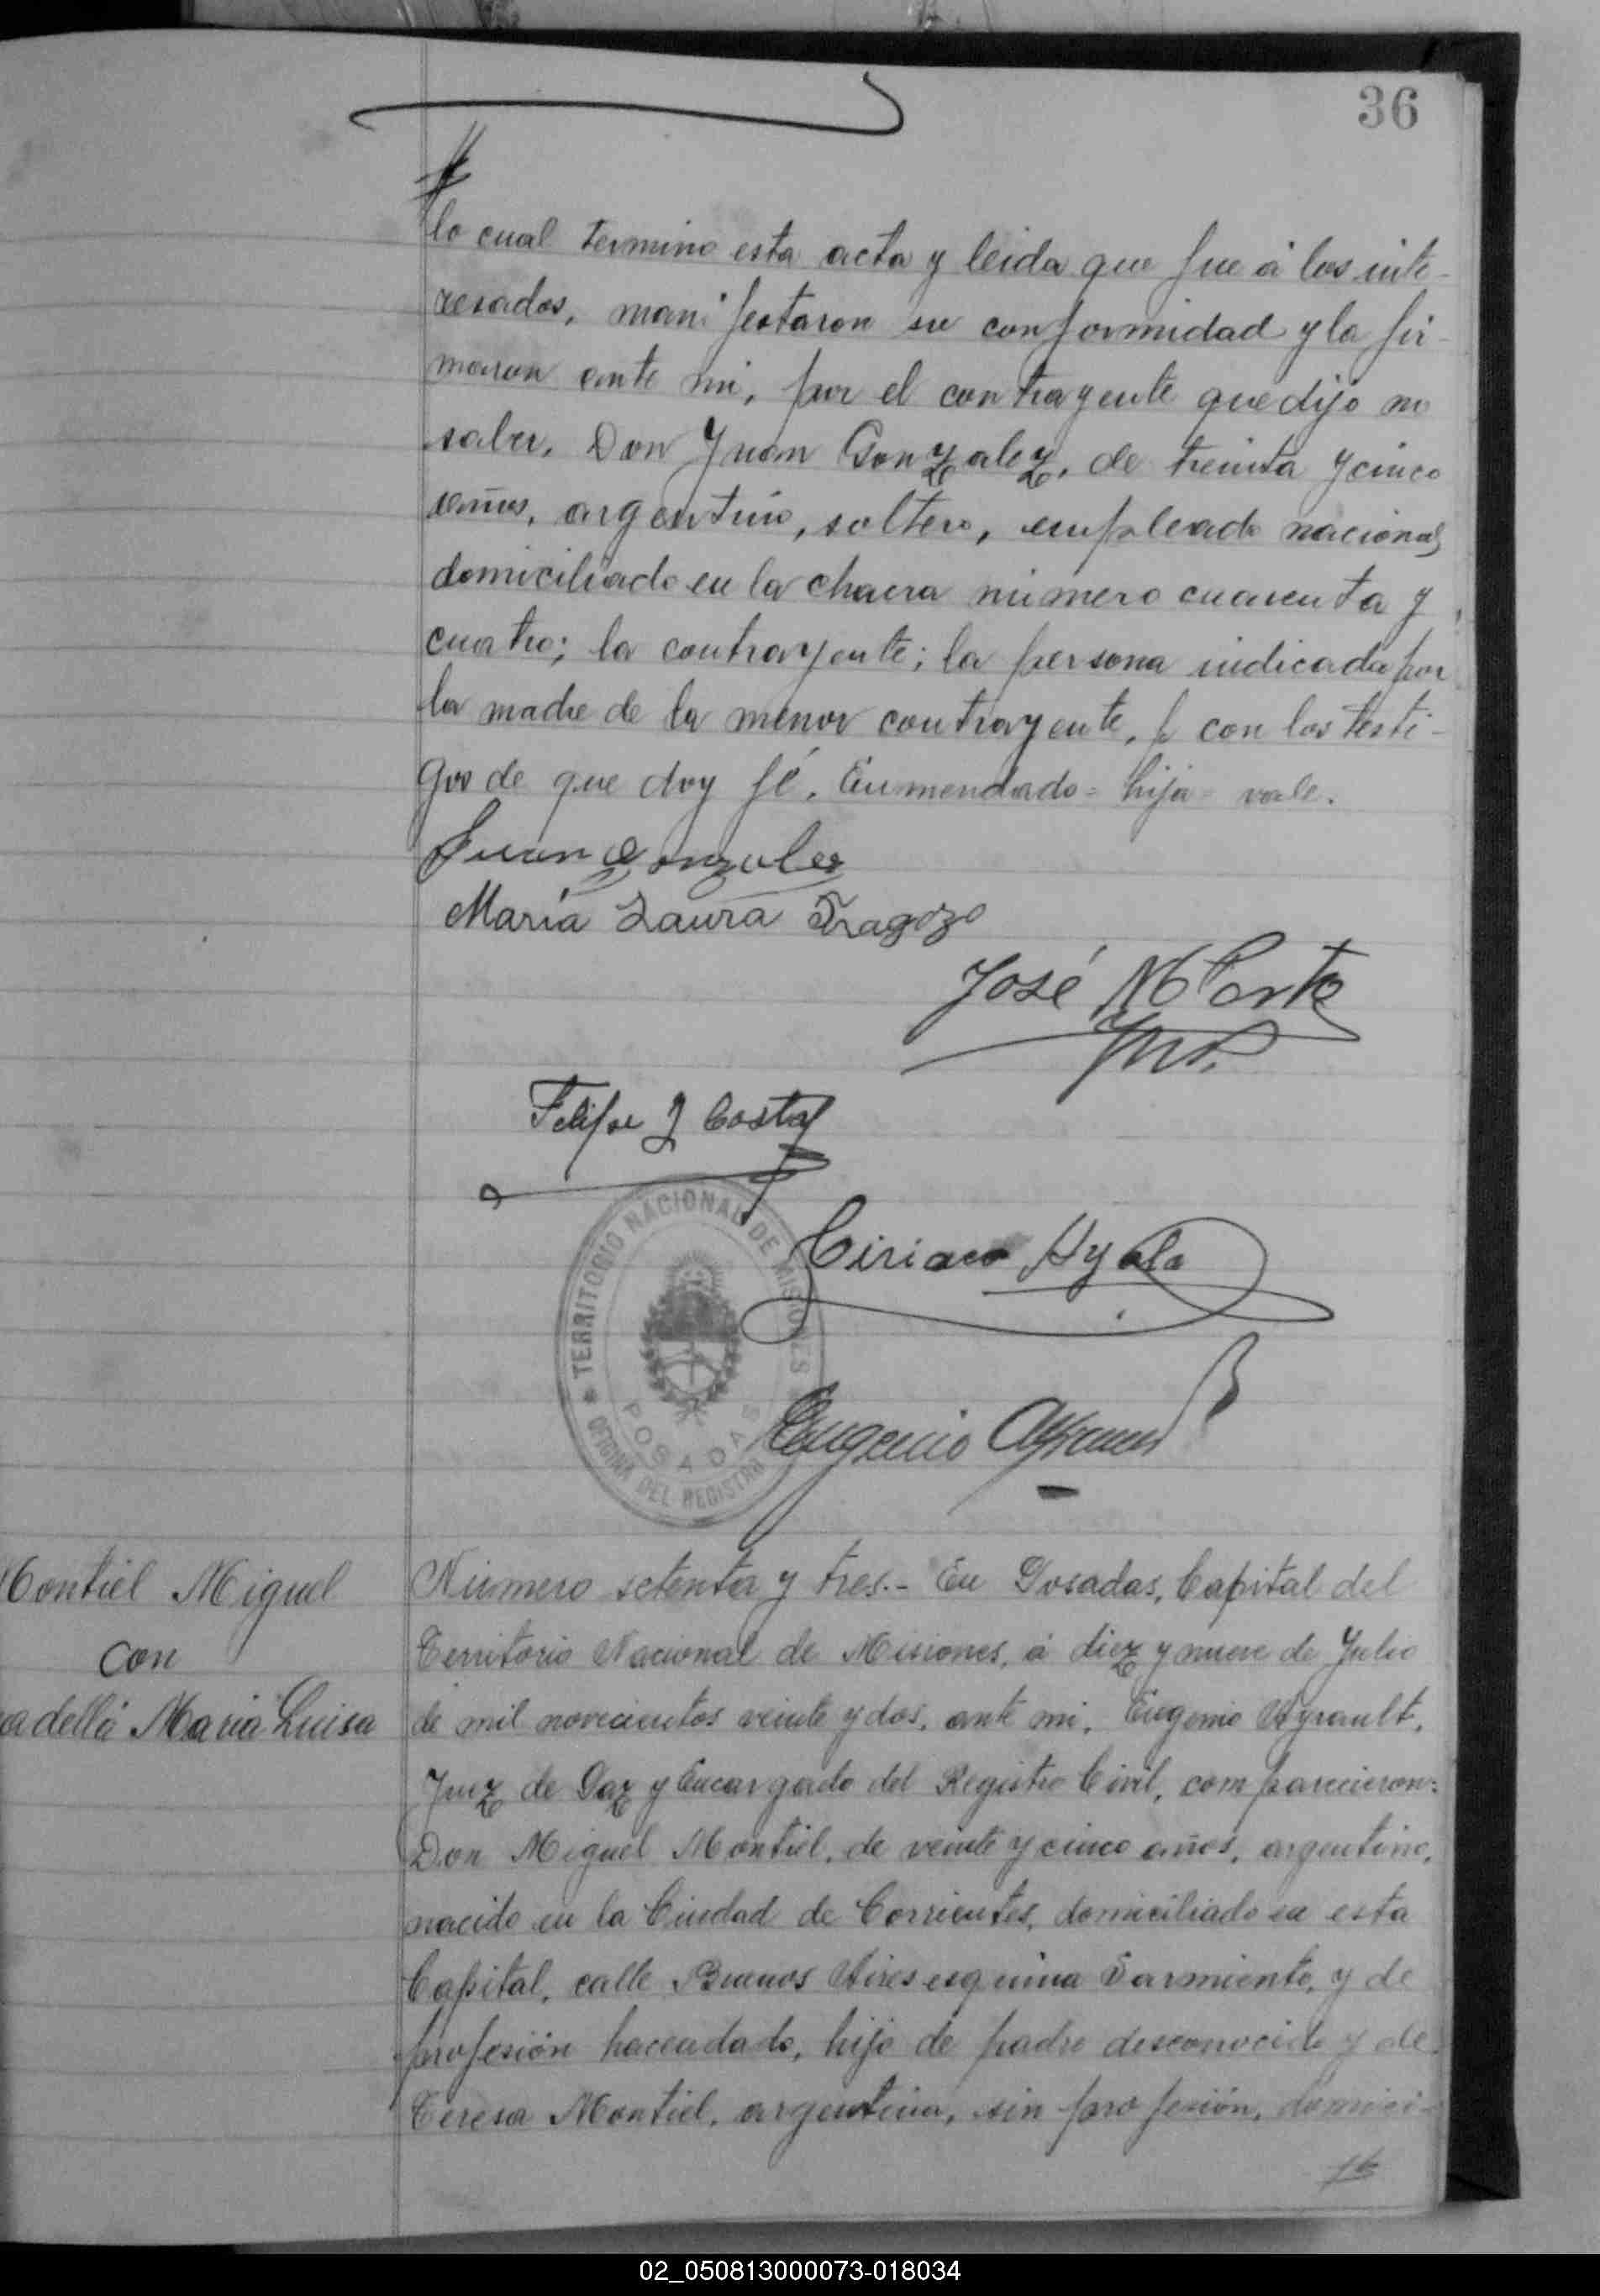 36
lo cual termino esta acta y leida que fue á los inte-
resados, manifestaron su conformidad y la fir-
maron ante mi, por el contrayente que dijo no
saber, Don Juan Gonzalez, de treinta y cinco
años, argentino, soltero, empleado nacional
domiciliado en la chacra número cuarenta y
cuatro; la contrayente; la persona indicada por
la madre de la menor contrayente, y con los testi-
gos de que doy fé. Enmendado = hija = vale.
Juan Gonzalez
María Laura Fragozo
José M
Felipe J Costa
TERRITORIO NACIONAL DE MISIONES
POSADAS
OFICINA DEL REGISTRO
Ciriaco Ayala
Eugenio Ayrault
Montiel Miguel
con
adella Maria Luisa
Número setenta y tres.- En Posadas, Capital del
Territorio Nacional de Misiones, á diez y nueve de Julio
de mil novecientos veinte y dos, ante mi, Eugenio Ayrault,
Juez de Paz y Encargado del Registro Civil, comparecieron:
Don Miguel Montiel, de veinte y cinco años, argentino,
nacido en la Ciudad de Corrientes, domiciliado en esta
Capital, calle Buenos Aires esquina Sarmiento, y de
profesión hacendado, hijo de padre desconocido y de
Teresa Montiel, argentina, sin profesión, domici-
02_050813000073-018034